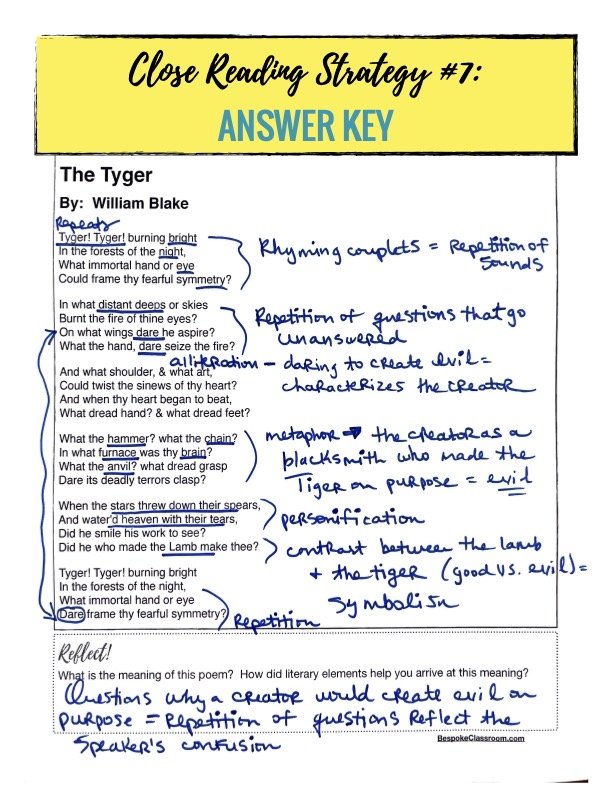 Close Reading Strategy #7:
ANSWER KEY
The Tyger
By: William Blake
Repeats
Tyger! Tyger! burning bright
In the forests of the night,
What immortal hand or eye
Could frame thy fearful symmetry?
Rhyming couplets = Repetition of
Sounds
In what distant deeps or skies
Burnt the fire of thine eyes?
On what wings dare he aspire?
What the hand, dare seize the fire?
Repetition of questions that go
unanswered
alliteration – daring to create evil =
characterizes the creator
And what shoulder, & what art,
Could twist the sinews of thy heart?
And when thy heart began to beat,
What dread hand? & what dread feet?
What the hammer? what the chain?
In what furnace was thy brain?
What the anvil? what dread grasp
Dare its deadly terrors clasp?
metaphor → the creator as a
blacksmith who made the
Tiger on purpose = evil
When the stars threw down their spears,
And water'd heaven with their tears,
Did he smile his work to see?
Did he who made the Lamb make thee?
personification
contrast between the lamb
+ the tiger (good vs. evil) =
Symbolism
Tyger! Tyger! burning bright
In the forests of the night,
What immortal hand or eye
Dare frame thy fearful symmetry?
Repetition
Reflect!
What is the meaning of this poem? How did literary elements help you arrive at this meaning?
Questions why a creator would create evil on
purpose = Repetition of questions Reflect the
Speaker's confusion
BespokeClassroom.com